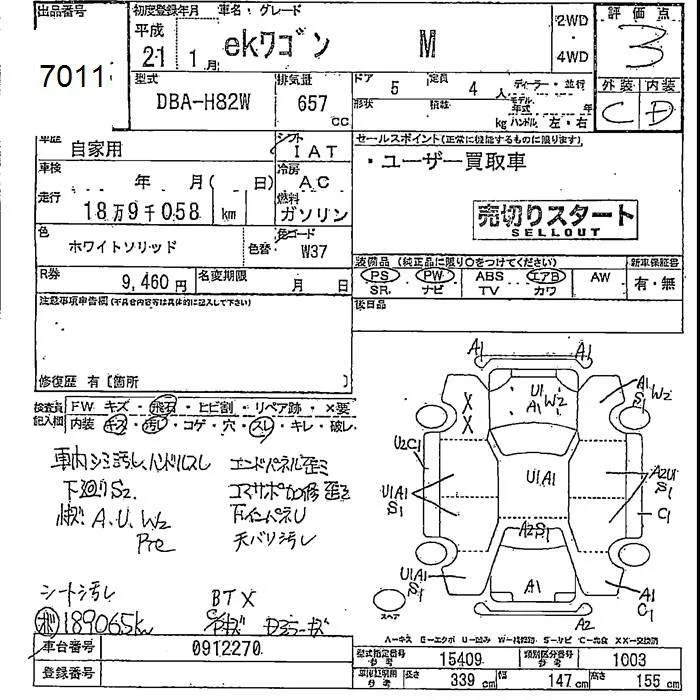 出品番号
7011
初度登録年月 車名・グレード
平成 21 1月 ekワゴン M
2WD
4WD
評価点
3
外装 内装
C D
型式 DBA-H82W
排気量 657 cc
ドア 5 定員 4人
形状 積載 kg
ディーラー・並行
モデル年式 年
ハンドル 左・右
車歴 自家用
シフト IAT
車検 年 月( 日)
冷房 AC
走行 18万9千058 km
燃料 ガソリン
色 ホワイトソリッド 色替
色コード W37
R券 9,460円
名変期限 月 日
セールスポイント(正常に機能するものに限ります)
・ユーザー買取車
売切りスタート
SELLOUT
装備品 (純正品に限り○をつけてください)
新車保証書
PS PW ABS エアB AW
SR ナビ TV カワ
有・無
後日品
注意事項申告欄(不具合内容等は具体的に記入して下さい)
修復歴 有〔箇所 〕
検査員記入欄
FW キズ・飛石・ヒビ割・リペア跡・×要
内装 キズ・汚レ・コゲ・穴・スレ・キレ・破レ
車内シミ汚レ、ハンドルスレ
エンドパネル歪ミ
下廻りS2
コアサポ加修歪ミ
A.U.W2
天バリ汚レ
シート汚レ
BTX
189065km
A1 A1
U1
A1 W2
X
X
A1 W2
S1
U2C1
U1A1
S1
U1A1
A2U1
S1
C1
A2S1
U1A1
S1
A1
A1
C1
A2
スペア
A-キズ E-エクボ U-凹み W-補修跡 S-サビ C-腐食 XX-交換済
車台番号 0912270
登録番号
型式指定番号 参考 15409
類別区分番号 参考 1003
長さ 339cm 幅 147cm 高さ 155cm